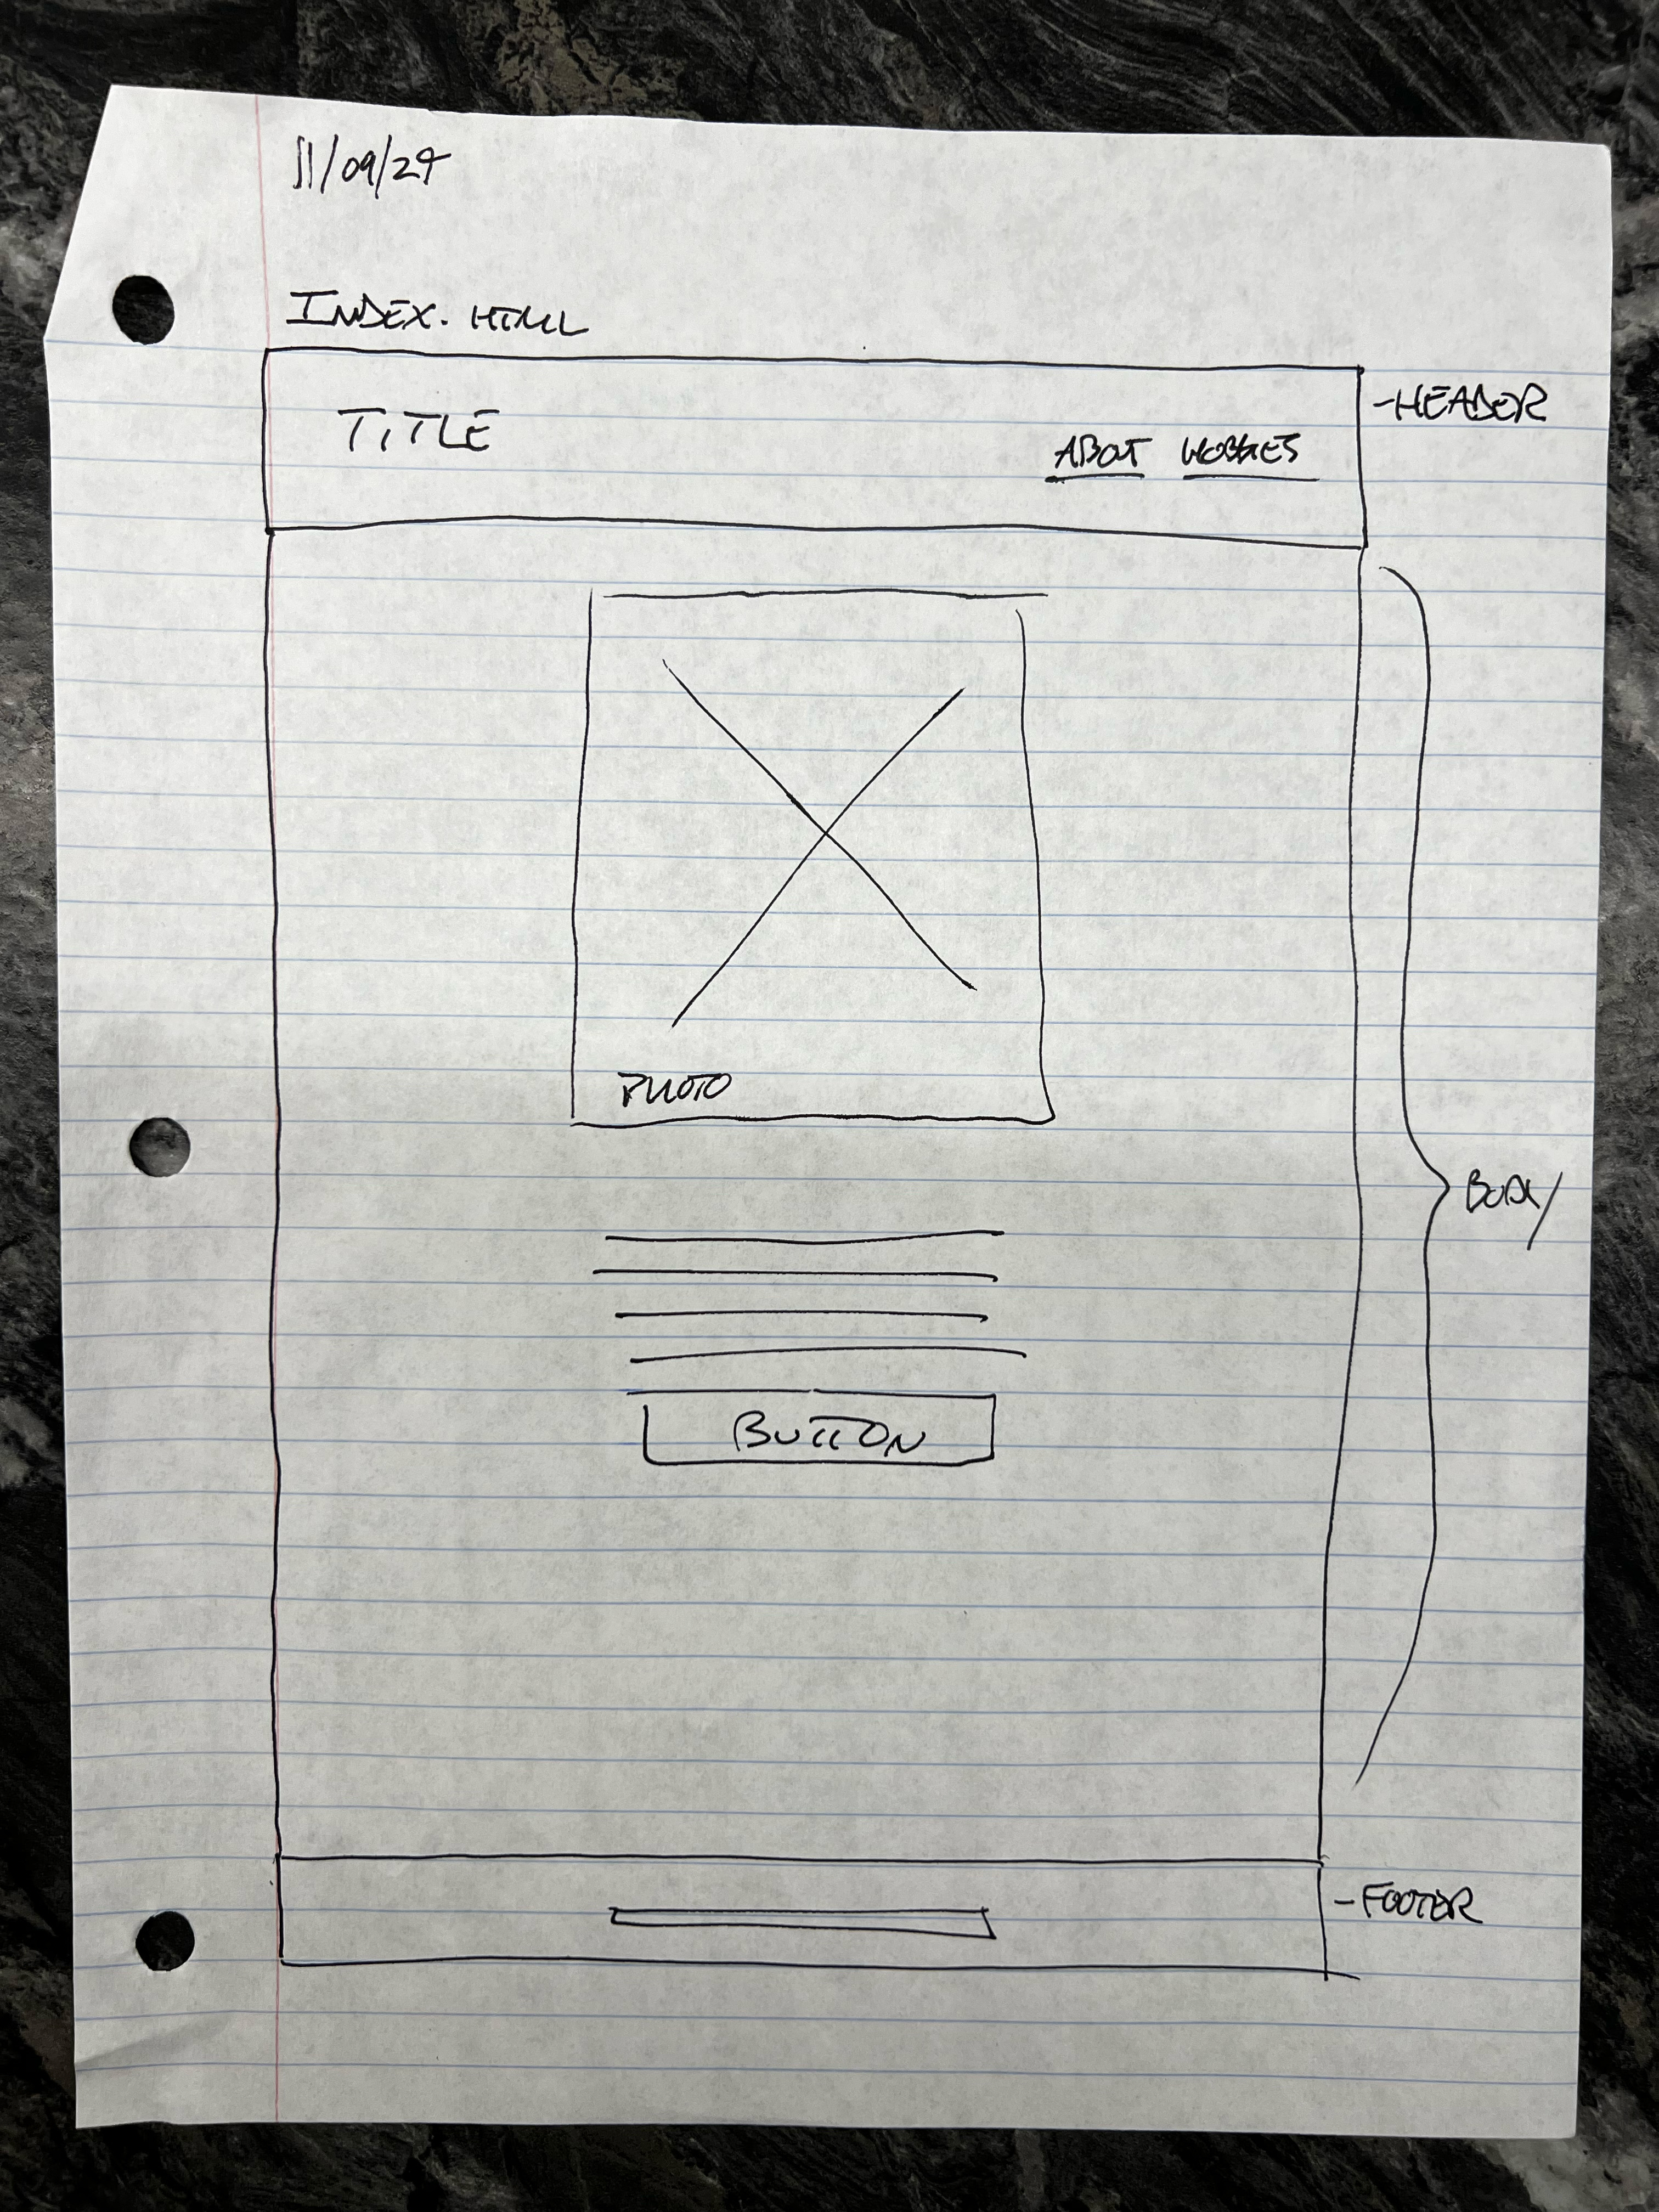 11/09/24
INDEX.HTML
TITLE
ABOUT HOBBIES
-HEADER
PHOTO
BODY
BUTTON
-FOOTER